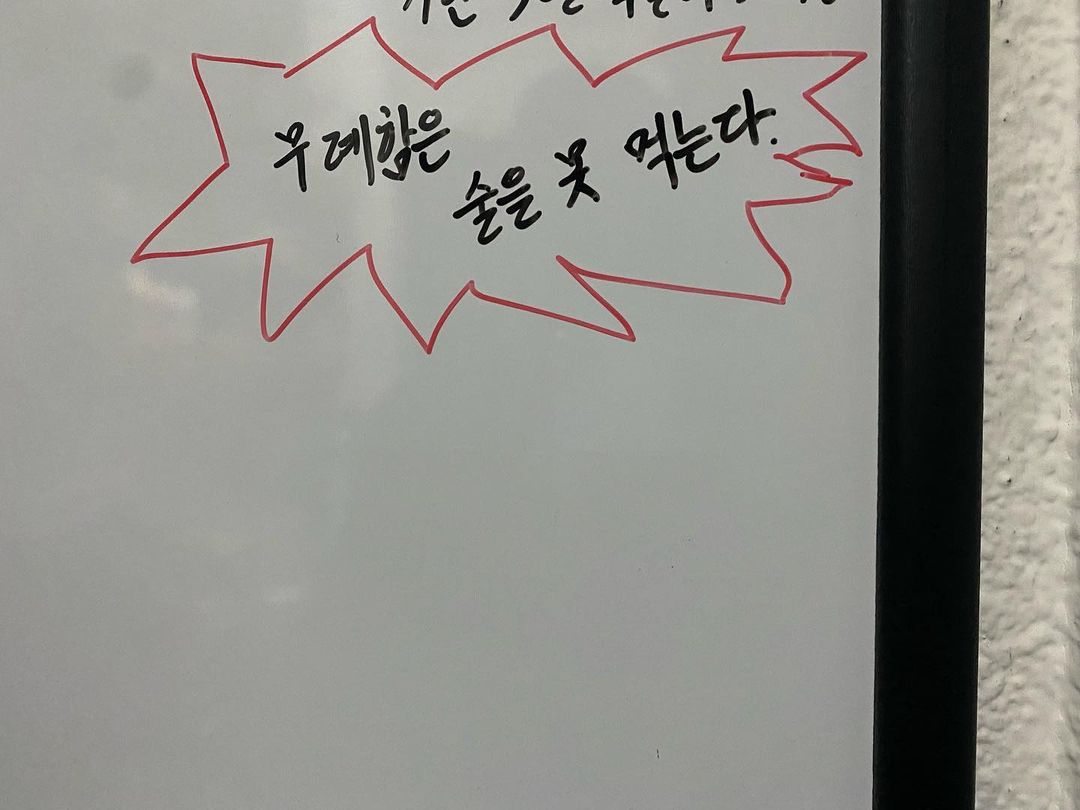 무례함은
술을 못 먹는다.